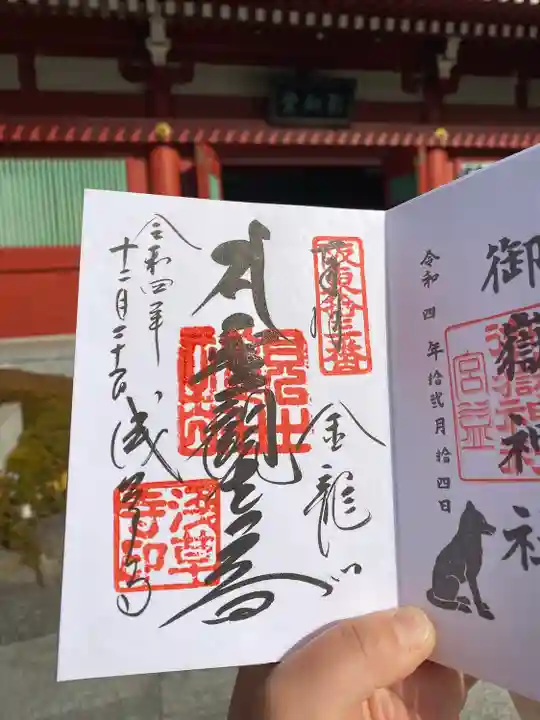 御嶽神社
令和四年拾弐月拾四日
宮益
坂東第十三番
奉拝
金龍山
聖観世音
浅草寺印
令和四年
十二月
浅草寺